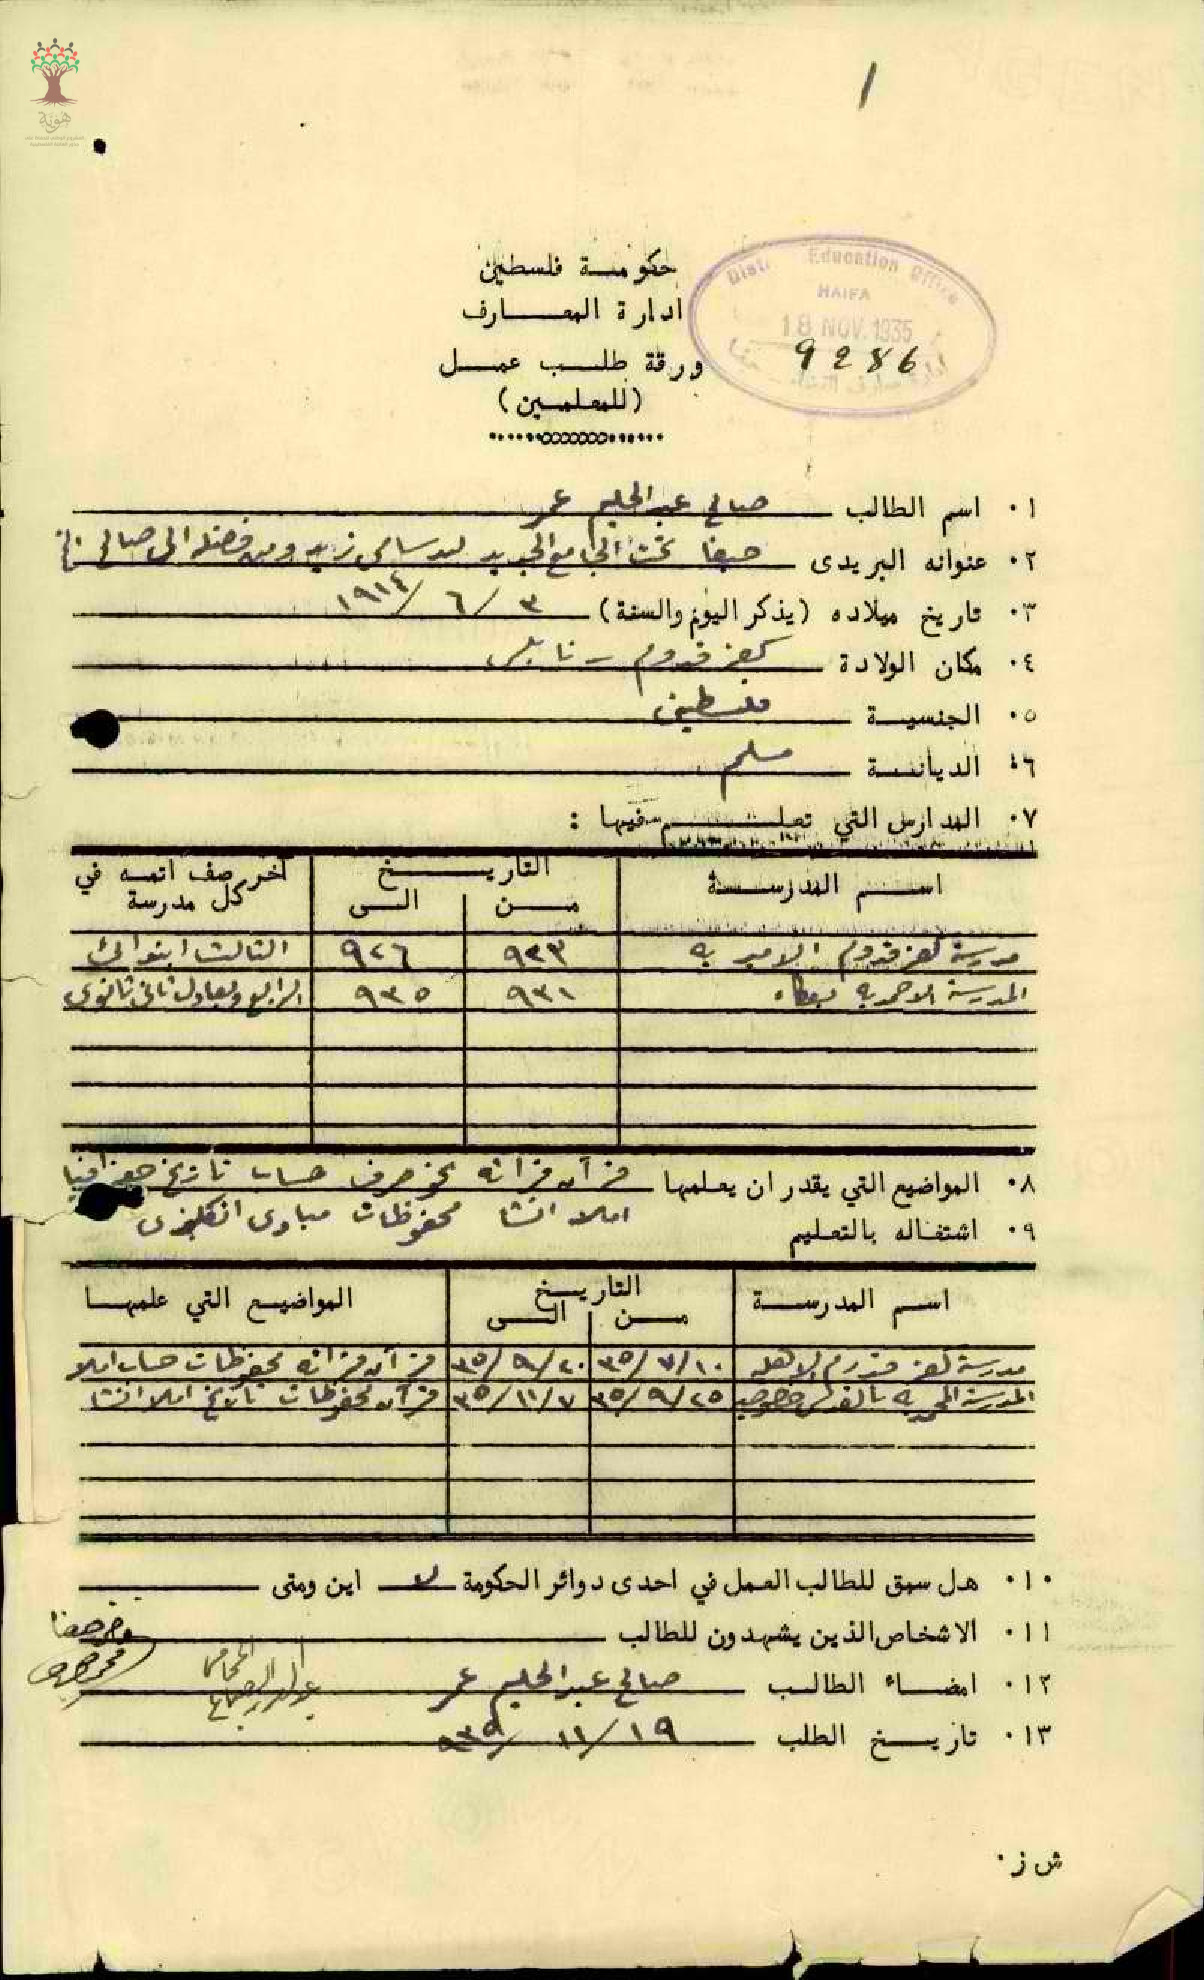 هوية
١
حكومة فلسطين
ادارة المعارف
ورقة طلب عمل
(للمعلمين)
Education Office
HAIFA
18 NOV. 1935
9286
٠١ اسم الطالب صالح عبد الحليم عمر
٠٢ عنوانه البريدى حيفا تحت الجامع الجديد ومن فضله الى صالح
٠٣ تاريخ ميلاده (يذكر اليوم والسنة) ٣ / ٦ / ١٩١٤
٠٤ مكان الولادة كفر قدوم - نابلس
٠٥ الجنسية فلسطيني
٠٦ الديانة مسلم
٠٧ المدارس التي تعلم فيها :
اسم المدرسة التاريخ آخر صف اتمه في كل مدرسة
من الى
مدرسة كفر قدوم الاميرية ٩٢٣ ٩٢٦ الثالث ابتدائي
المدرسة الاحمدية بعكا ٩٣١ ٩٣٥ الرابع ويعادل ثاني ثانوي
٠٨ المواضيع التي يقدر ان يعلمها قرآن قراءة نحو صرف حساب تاريخ جغرافيا
املاء انشا محفوظات مبادى انكليزى
٠٩ اشتغاله بالتعليم
اسم المدرسة التاريخ المواضيع التي علمها
من الى
مدرسة كفر قدوم الاهلية ٣٥/٧/١٠ ٣٥/٩/٢٠ قرآن قراءة محفوظات حساب املا
المدرسة المحمدية بالقدس ٣٥/٩/٢٥ ٣٥/١١/٧ قرآن محفوظات تاريخ املا انشا
٠١٠ هل سبق للطالب العمل في احدى دوائر الحكومة لا اين ومتى
٠١١ الاشخاص الذين يشهدون للطالب
٠١٢ امضاء الطالب صالح عبد الحليم عمر
٠١٣ تاريخ الطلب ١٩ / ١١ / ٩٣٥
ش ز ٠